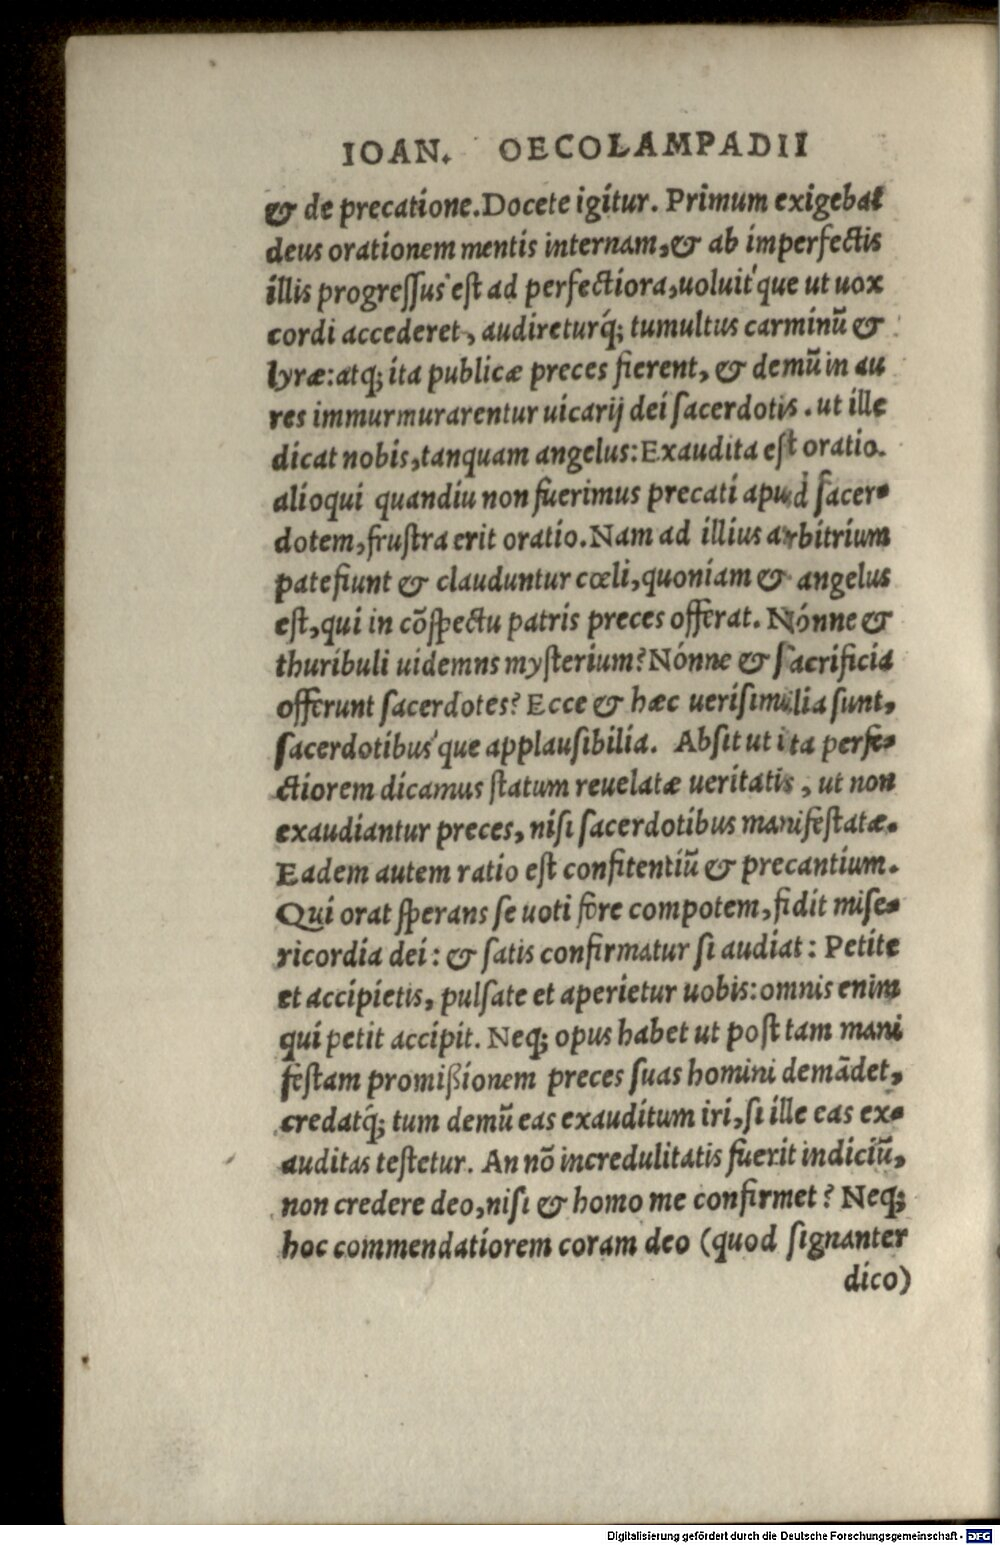 IOAN. OECOLAMPADII
& de precatione. Docete igitur. Primum exigebat
deus orationem mentis internam, & ab imperfectis
illis progreſſus eſt ad perfectiora, uoluit que ut uox
cordi accederet, audireturq́; tumultus carminū &
lyræ: atq; ita publicæ preces fierent, & demū in au
res immurmurarentur uicarij dei ſacerdotis. ut ille
dicat nobis, tanquam angelus: Exaudita eſt oratio.
alioqui quandiu non fuerimus precati apud ſacer-
dotem, fruſtra erit oratio. Nam ad illius arbitrium
patefiunt & clauduntur cœli, quoniam & angelus
eſt, qui in cōſpectu patris preces offerat. Nónne &
thuribuli uidemns myſterium? Nónne & ſacrificia
offerunt ſacerdotes? Ecce & hæc ueriſimilia ſunt,
ſacerdotibus que applauſibilia. Abſit ut ita perfe-
ctiorem dicamus ſtatum reuelatæ ueritatis, ut non
exaudiantur preces, niſi ſacerdotibus manifeſtatæ.
Eadem autem ratio eſt confitentiū & precantium.
Qui orat ſperans ſe uoti fore compotem, fidit miſe-
ricordia dei: & ſatis confirmatur ſi audiat: Petite
et accipietis, pulſate et aperietur uobis: omnis enim
qui petit accipit. Neq; opus habet ut poſt tam mani
feſtam promißionem preces ſuas homini demādet,
credatq́; tum demū eas exauditum iri, ſi ille eas ex-
auditas teſtetur. An nō incredulitatis fuerit indiciū,
non credere deo, niſi & homo me confirmet? Neq;
hoc commendatiorem coram deo (quod ſignanter
dico)
Digitalisierung gefördert durch die Deutsche Forschungsgemeinschaft - DFG